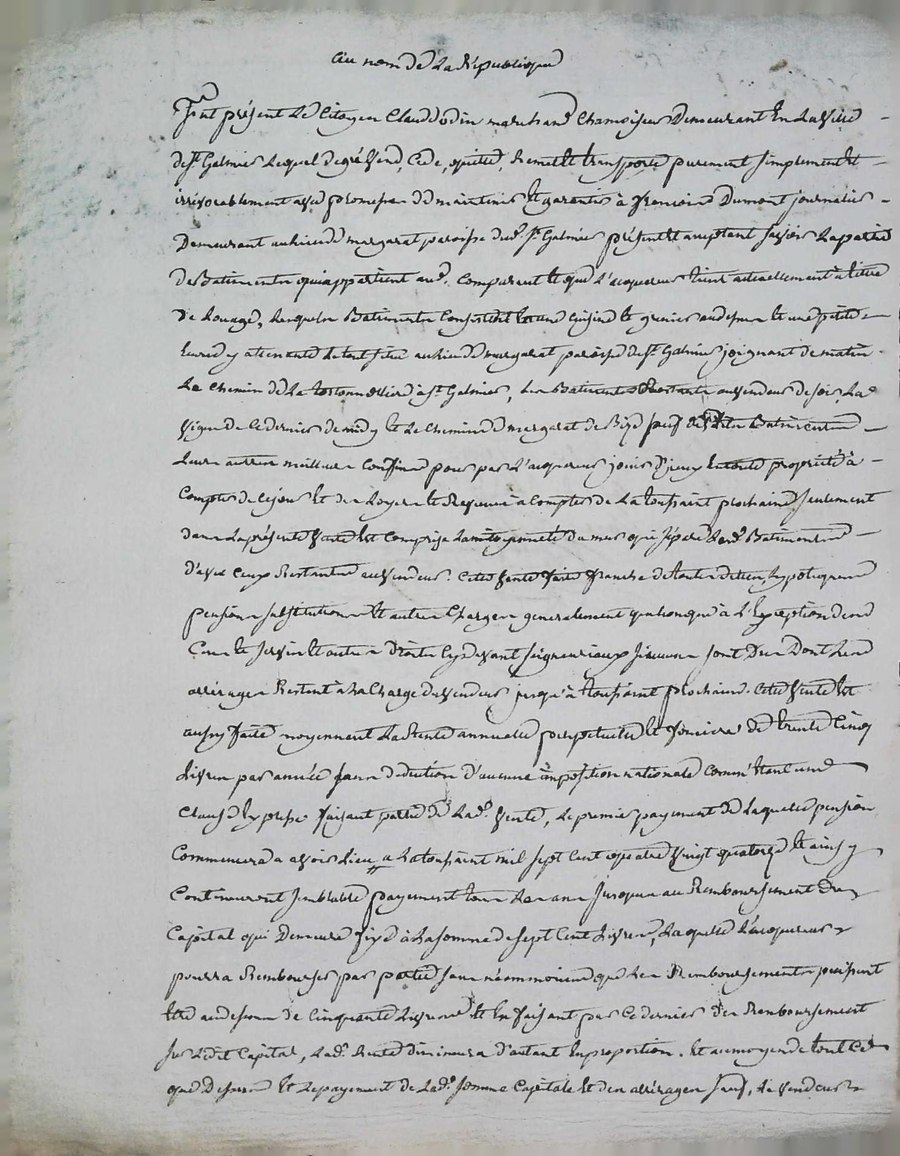 au nom de la République
fut présent le Citoyen Claud odin marchand Chamoiseur Demeurant En la ville
de st Galmier Lequel degré vend, Cede, quitte, Remet et transporte purement simplement et
irrévocablement avec promesse de maintenir et garantir à françois Dumont journalier
Demeurant au lieu de margarat paroisse dud. st Galmier présent et acceptant savoir La partie
de Batiments qui appartient aud. Comparent et que l'acquereur tient actuellement à titre
De Louage, lesquels Batiments Consistent En une Cuisine le grenier audessus et une petite
Ecurie y attenante le tout situé au lieu de margarat paroisse de st Galmier joignant de matin
Le Chemin de La à st Galmier, les Batiments Restants au vendeur de soir, La
vigne de Ce dernier de midy et le Chemin de margarat de Bize sauf desdits Batiments
Leurs autres meilleurs Confins pour par l'acquereur jouir D'iceux En toute propriété à
Compter de Ce jour et des Loyers et Revenus à Compter de La toussaint prochaine seulement
dans La présente vente est Comprise La mitoyenneté du mur qui sépare Lesd. Batiments
d'avec Ceux Restants au vendeur. Cette vente faite franche de toutes dettes, hypoteques
pensions substitutions et autres Charges generalement quelconque à l'Exception des
Cens et servis et autres droits Cy devant seigneuriaux si aucuns sont Dus Dont Les
arrérages Restent à la Charge du vendeur jusqu'à toussaint prochaine. Cette vente est
aussy faite moyennant La Rente annuelle perpetuelle et fonciere de trente Cinq
Livres par année sans deduction d'aucune imposition nationale Comm' Etant une
Clause Expresse faisant partie de Lad. vente, Le premier payement de Laquelle pension
Commencera a avoir Lieu a La toussaint mil sept Cent quatre vingt quatorze et ainsy
Continueront semblable payement tous Les ans jusques au Remboursement du
Capital qui Demeure fixé à la somme de sept Cent Livres, Laquelle L'acquereur
pourra Rembourser par partie sans néammoins que Les Remboursements puissent
Etre audessous de Cinquante Livres et En faisant par Ce dernier des Remboursement
sur Ledit Capital, Lad. Rente diminuera d'autant En proportion. Et au moyen de tout Ce
que Dessus Et Le payement de Lad. somme Capitale et des arrérages sauf, Le vendeur